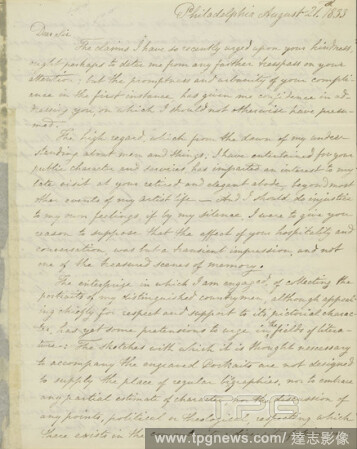 Philadelphia August 26th 1833
Dear Sir
The claims I have so recently urged upon your kindness
might perhaps to deter me from any further trespass on your
attention; but the promptness and urbanity of your compli-
ance in the first instance has given me confidence in ad-
dressing you, on which I should not otherwise have presu-
med —
The high regard, which from the dawn of my under-
standing about men and things, I have entertained for your
public character and services has imparted an interest to my
late visit at your retired and elegant abode, beyond most
other events of my artist life — And I should do injustice
to my own feelings, if by my silence I were to give you
reason to suppose that the effect of your hospitality and
conversation, was but a transient impression, and not
one of the treasured scenes of memory.
The enterprize in which I am engaged, of collecting the
portraits of my distinguished countrymen, although appea-
ling chiefly for respect and support to its pictorial charac-
ter, has yet some pretensions to urge in the fields of litera-
ture: The sketches with which it is thought necessary
to accompany the engraved Portraits are not designed
to supply the place of regular biographies, nor to embrace
any partial estimate of character, or the discussion of
any points, political or theological, respecting which
there exists in the
TPG
www.tpgnews.com/達志影像